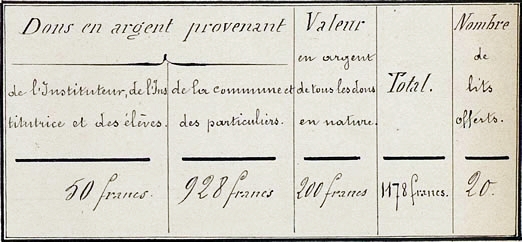 Dons en argent provenant
de l'Instituteur, de l'Ins
titutrice et des élèves.
de la commune et
des particuliers.
Valeur
en argent
de tous les dons
en nature.
Total.
Nombre
de
lits
offerts.
50 francs.
928 francs
200 francs
1178 francs.
20.